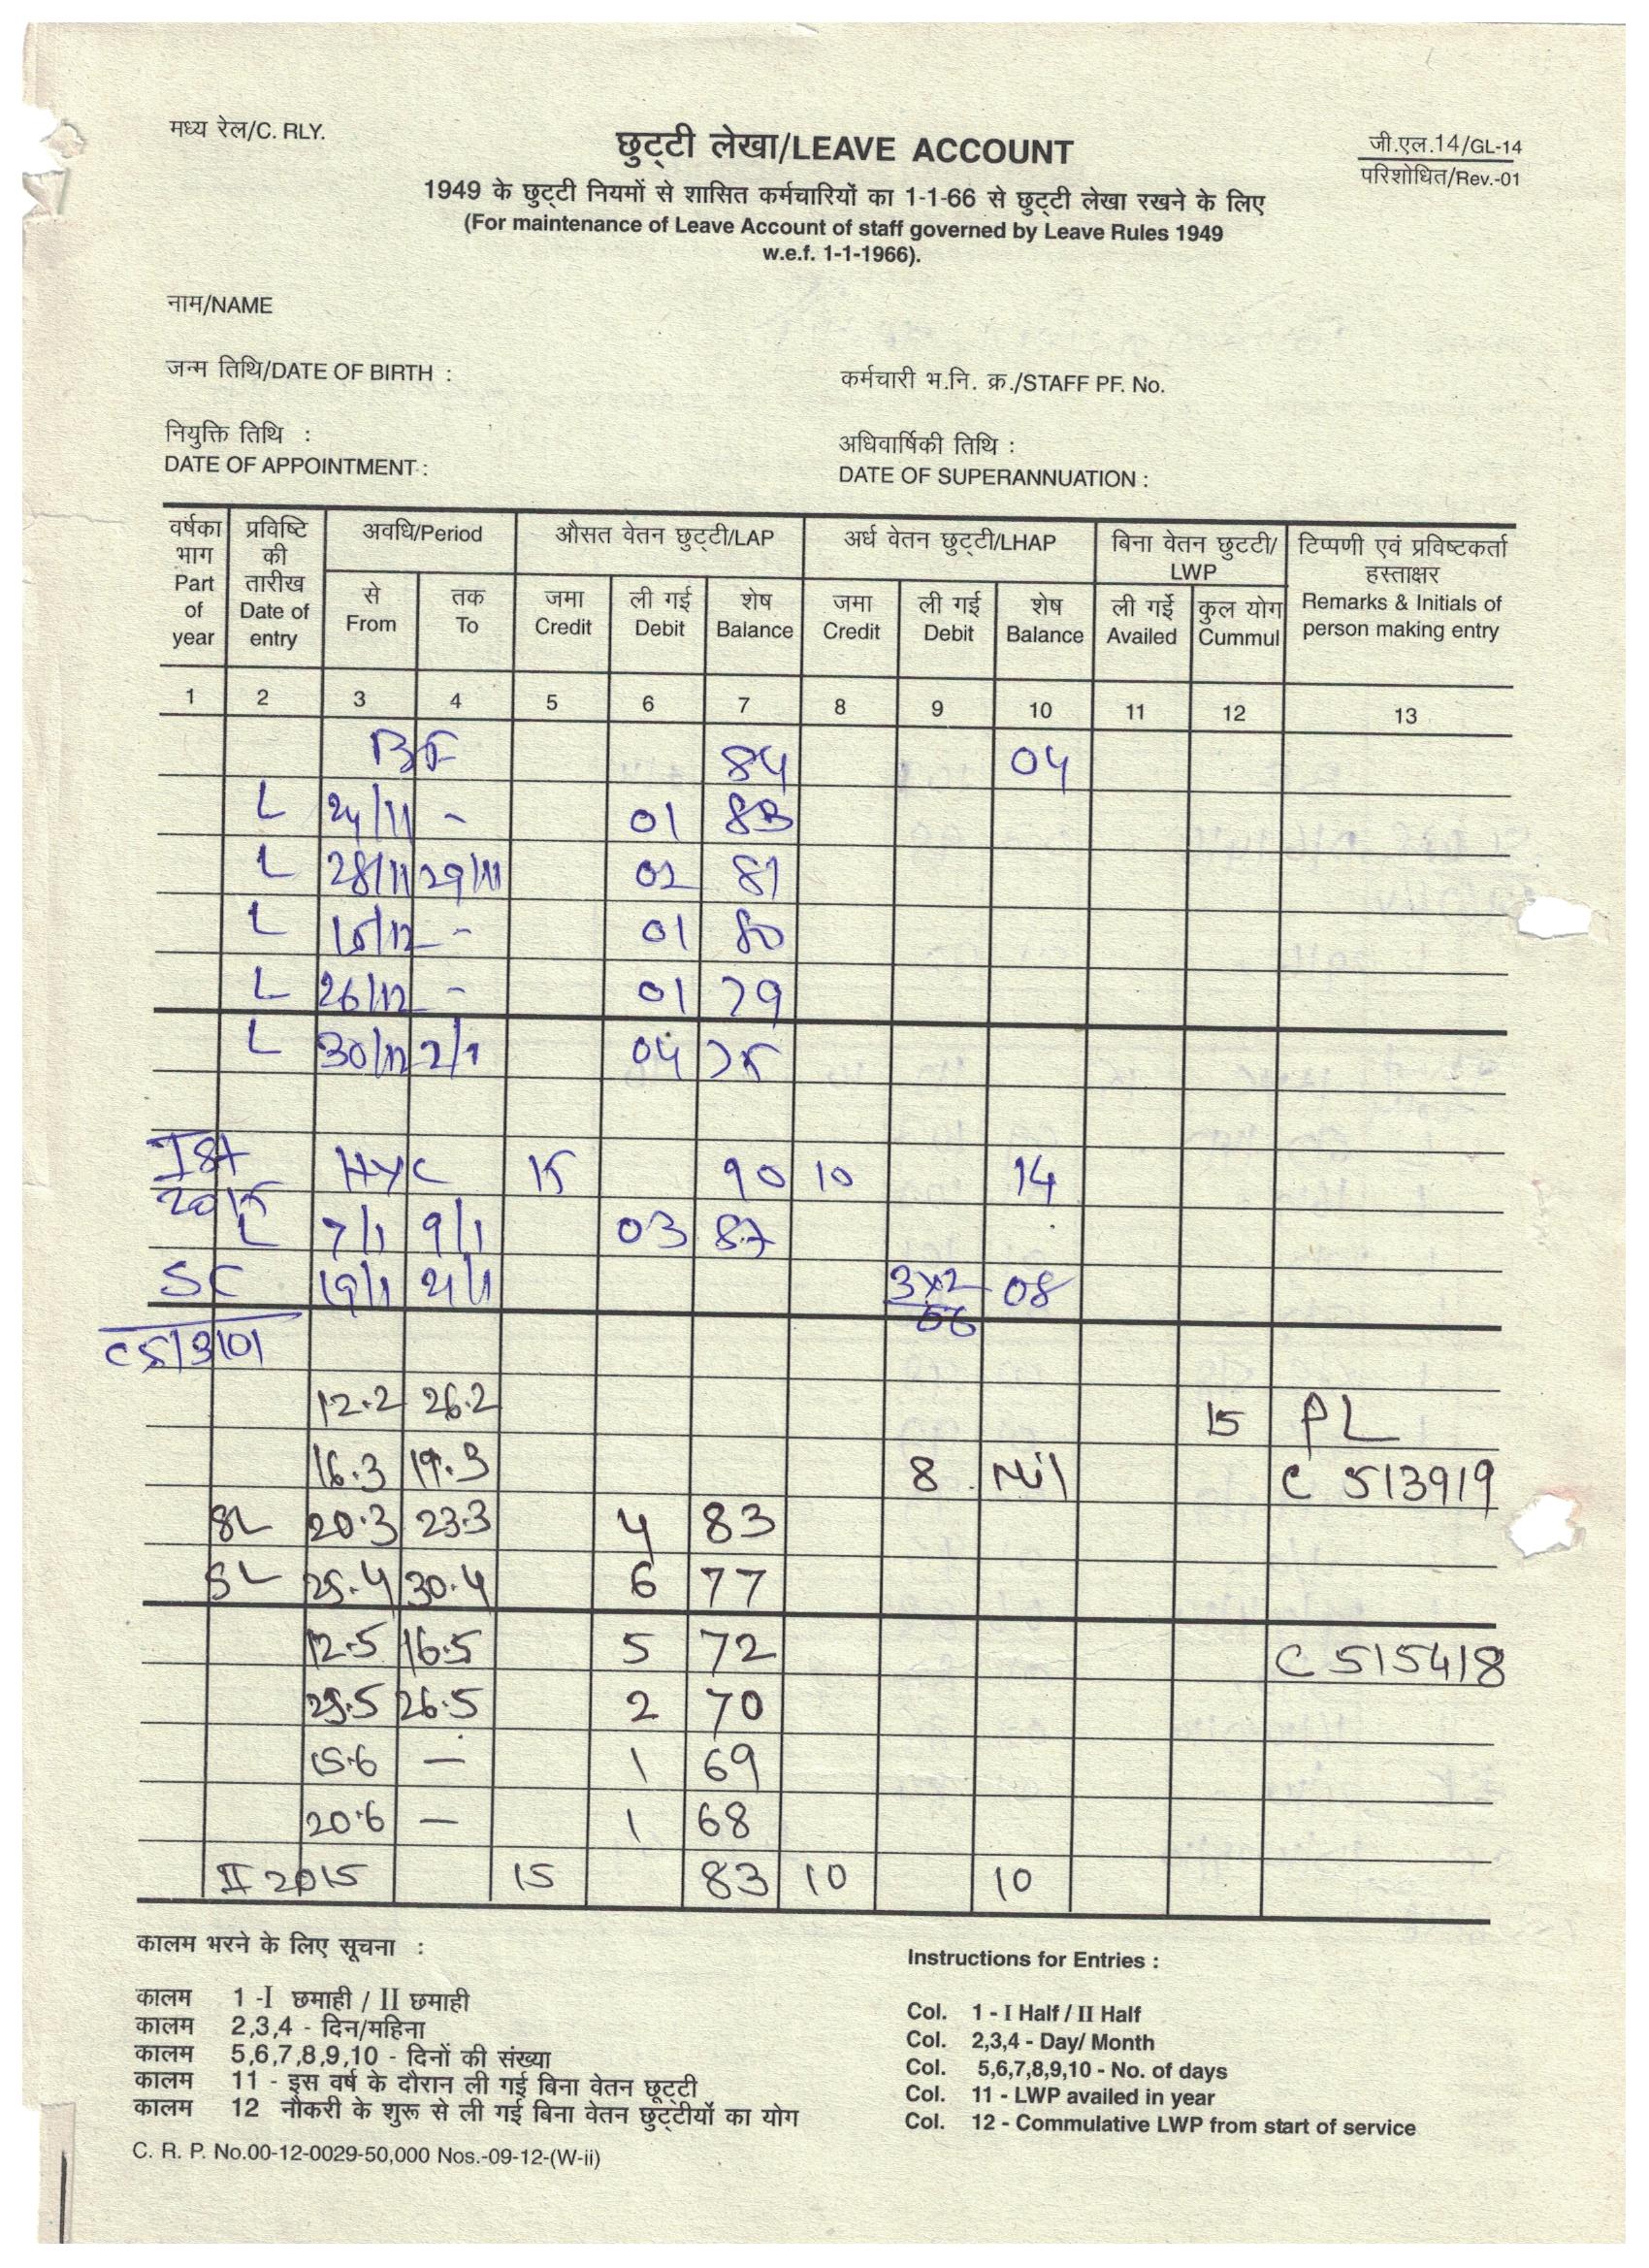 मध्य रेल/C. RLY.
छुट्टी लेखा/LEAVE ACCOUNT
जी.एल.14/GL-14
परिशोधित/Rev.-01
1949 के छुट्टी नियमों से शासित कर्मचारियों का 1-1-66 से छुट्टी लेखा रखने के लिए
(For maintenance of Leave Account of staff governed by Leave Rules 1949
w.e.f. 1-1-1966).
नाम/NAME
जन्म तिथि/DATE OF BIRTH :
कर्मचारी भ.नि. क्र./STAFF PF. No.
नियुक्ति तिथि :
DATE OF APPOINTMENT :
अधिवार्षिकी तिथि :
DATE OF SUPERANNUATION :
वर्षका भाग Part of year
प्रविष्टि की तारीख Date of entry
अवधि/Period
औसत वेतन छुट्टी/LAP
अर्ध वेतन छुट्टी/LHAP
बिना वेतन छुटटी/ LWP
टिप्पणी एवं प्रविष्टकर्ता हस्ताक्षर Remarks & Initials of person making entry
से From
तक To
जमा Credit
ली गई Debit
शेष Balance
जमा Credit
ली गई Debit
शेष Balance
ली गईं Availed
कुल योग Cummul
1 2 3 4 5 6 7 8 9 10 11 12 13
BF 84 04
L 24/11 - 01 83
L 28/11 29/11 02 81
L 15/12 - 01 80
L 26/12 - 01 79
L 30/12 2/1 04 75
Ist HYC 15 90 10 14
2015
L 7/1 9/1 03 87
SC 19/1 21/1 3x2 08
06
C 513101
12.2 26.2 15 PL
16.3 19.3 8 Nil C 513919
SL 20.3 23.3 4 83
SL 25.4 30.4 6 77
12.5 16.5 5 72 C 515418
25.5 26.5 2 70
15.6 — 1 69
20.6 — 1 68
II 2015 15 83 10 10
कालम भरने के लिए सूचना :
कालम 1 -I छमाही / II छमाही
कालम 2,3,4 - दिन/महिना
कालम 5,6,7,8,9,10 - दिनों की संख्या
कालम 11 - इस वर्ष के दौरान ली गई बिना वेतन छूट्टी
कालम 12 नौकरी के शुरू से ली गई बिना वेतन छुट्टीयों का योग
Instructions for Entries :
Col. 1 - I Half / II Half
Col. 2,3,4 - Day/ Month
Col. 5,6,7,8,9,10 - No. of days
Col. 11 - LWP availed in year
Col. 12 - Commulative LWP from start of service
C. R. P. No.00-12-0029-50,000 Nos.-09-12-(W-ii)